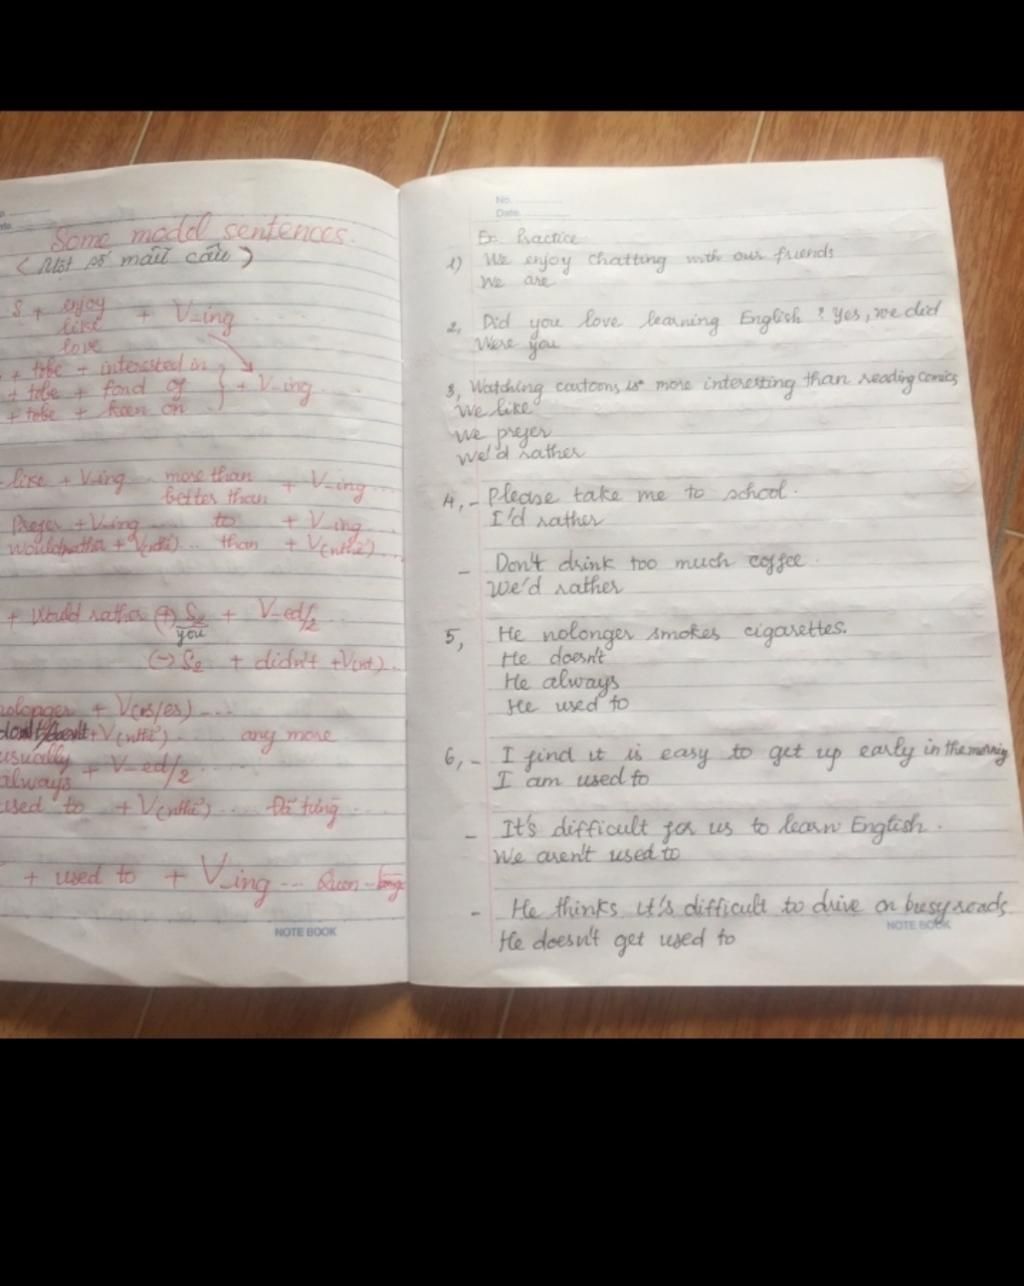 Some model sentences.
( Một số mẫu câu )
S + enjoy + V-ing
like
love
+ tobe + interested in
+ tobe + fond of + V-ing
+ tobe + keen on
like + V-ing more than + V-ing
better than
Prefer + V-ing to + V-ing
would rather + V(nthể) ... than + V(nthể)
+ Would rather (+) S2 + V-ed/2
you
(-) S2 + didn't + V(nt)
nolonger + V(es/es) ...
+ V(nthể) any more
usually
always + V-ed/2
used to + V(nthể) ... Đã từng
+ used to + V-ing ... Quen
NOTE BOOK
No.
Date
Ex Practice
1) We enjoy chatting with our friends
We are
2, Did you love learning English ? Yes, we did
Were you
3, Watching cartoons is more interesting than reading comics
We like
We prefer
We'd rather
4, - Please take me to school.
I'd rather
- Don't drink too much coffee
We'd rather
5, He nolonger smokes cigarettes.
He doesn't
He always
He used to
6, - I find it is easy to get up early in the morning
I am used to
- It's difficult for us to learn English.
We aren't used to
- He thinks it's difficult to drive on busy roads
He doesn't get used to
NOTE BOOK